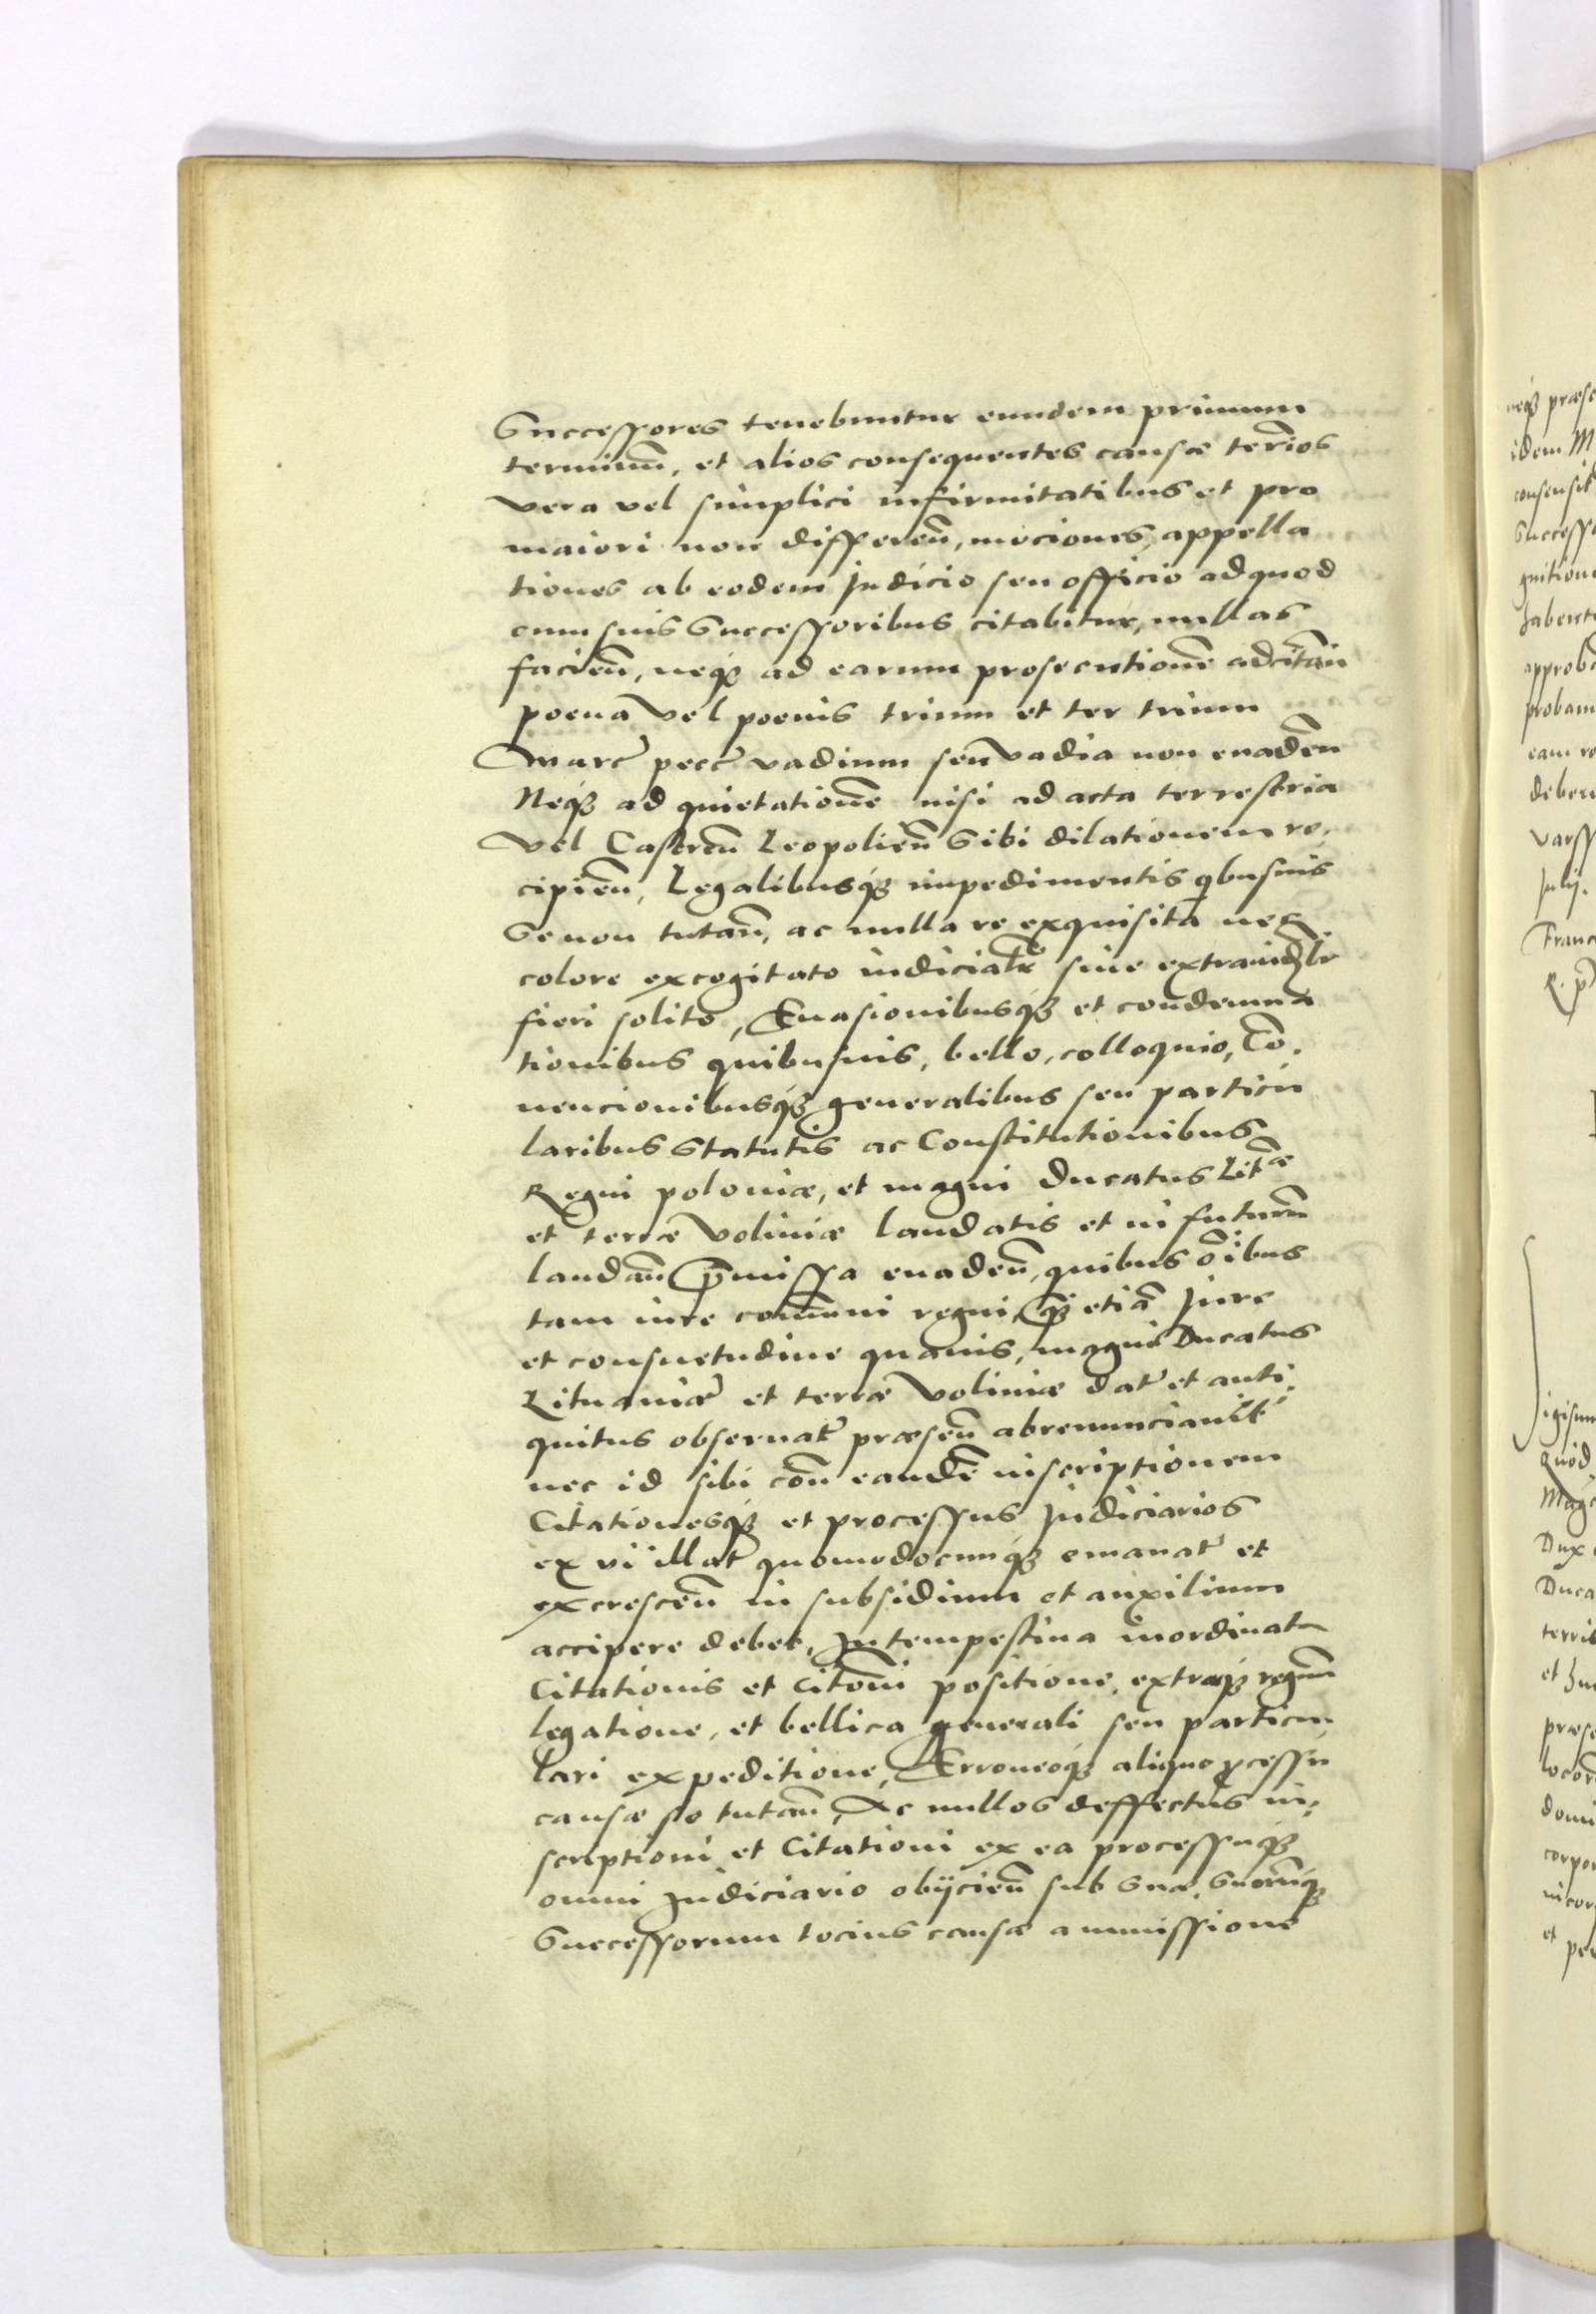 Successores tenebuntur eundem primum
terminũ, et alios consequentes causæ ter̃ios
vera vel simplici infirmitatibus et pro
maiori non differeñ, mociones, appella
tiones ab eodem Judicio seu officio ad quod
cum suis Successoribus citabitur, nullas
facieñ, neqȝ ad earum prosecutionẽ
poena vel poenis trium et ter trium
Marc̃ pecc̃ vadium seu vadia non euadeñ
Neqȝ ad quietationẽ nisi ad acta terrestria
vel Castreñ Leopolieñ Sibi dilationem re,
cipieñ, Legalibusqȝ impedimentis qbusuis
Se non tutañ, ac nulla re exquisita neqȝ
colore excogitato iudicialr̃ siue extraiudlr̃
fieri solito, Euasionibusqȝ et condemna
tionibus quibusuis, bello, colloquio, Cõ,
uencionibusqȝ generalibus seu particu
laribus Statutis ac Constitutionibus
Regni poloniæ, et magni Ducatus Litæ
et terræ Voliniæ laudatis et in futurũ
laudañ p̃missa euadeñ, quibus õibus
tam iure com̃uni regni, qȝ etiã Jure
et consuetudine quauis, magni Ducatus
Lituaniæ et terræ Voliniæ dat̃ et anti,
quitus obseruat̃ præseñ abrenunciauit
nec id sibi coñ eandẽ inscriptionem
Citationesqȝ et processus Judiciarios
ex vi illat̃ quomodocunqȝ emanat̃ et
excresceñ in subsidium et auxilium
accipere debet, Intempestiua inordinata
Citationis et Citoñi positione, extraqȝ regnũ
legatione, et bellica generali seu particu
lari expeditione, Erroneoqȝ aliquo pcessu
causæ se tutañ, Ac nullos deffectus in,
scriptioni et Citationi ex ea processuqȝ
omni Judiciario obijcieñ sub Sua, Suorũqȝ
Successorum tocius causæ ammissione